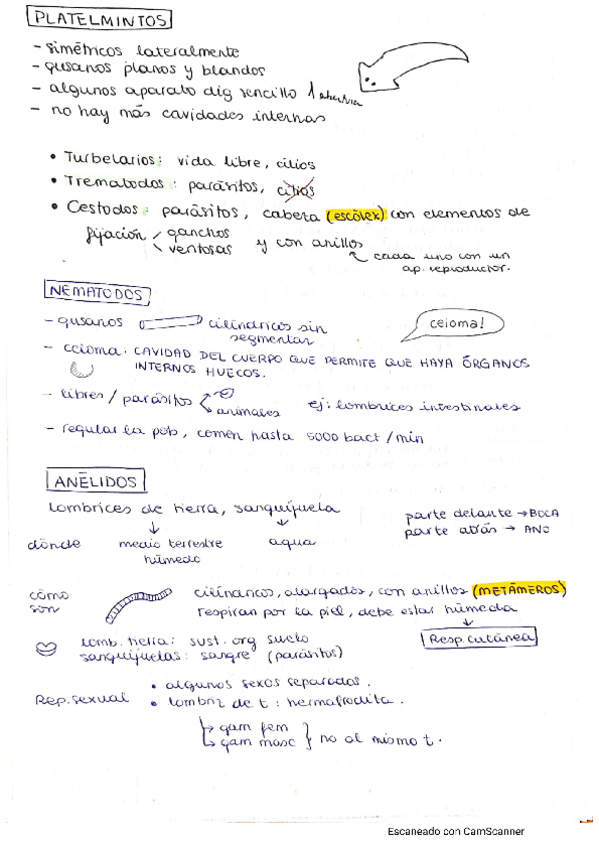 PLATELMINTOS
- simétricos lateralmente
- gusanos planos y blandos
- algunos aparato dig sencillo 1 abertura
- no hay más cavidades internas
• Turbelarios: vida libre, cilios
• Trematodos: parásitos, cilios
• Cestodos: parásitos, cabeza (escólex) con elementos de
fijación ganchos y con anillos
ventosas
cada uno con un
ap. reproductor.
NEMATODOS
- gusanos cilíndricos sin
segmentar
celoma!
- celoma: CAVIDAD DEL CUERPO QUE PERMITE QUE HAYA ÓRGANOS
INTERNOS HUECOS.
- libres / parásitos animales ej: lombrices intestinales
- regular la pob, comen hasta 5000 bact/min
ANÉLIDOS
lombrices de tierra, sanguijuela
parte delante → BOCA
parte atrás → ANO
dónde medio terrestre húmedo agua
cómo son cilíndricos, alargados, con anillos (METÁMEROS)
respiran por la piel, debe estar húmeda
Resp. cutánea
lomb. tierra: sust. org suelo
sanguijuelas: sangre (parásitos)
Rep. sexual • algunos sexos separados.
• lombriz de t: hermafrodita.
gam fem
gam masc } no al mismo t.
Escaneado con CamScanner